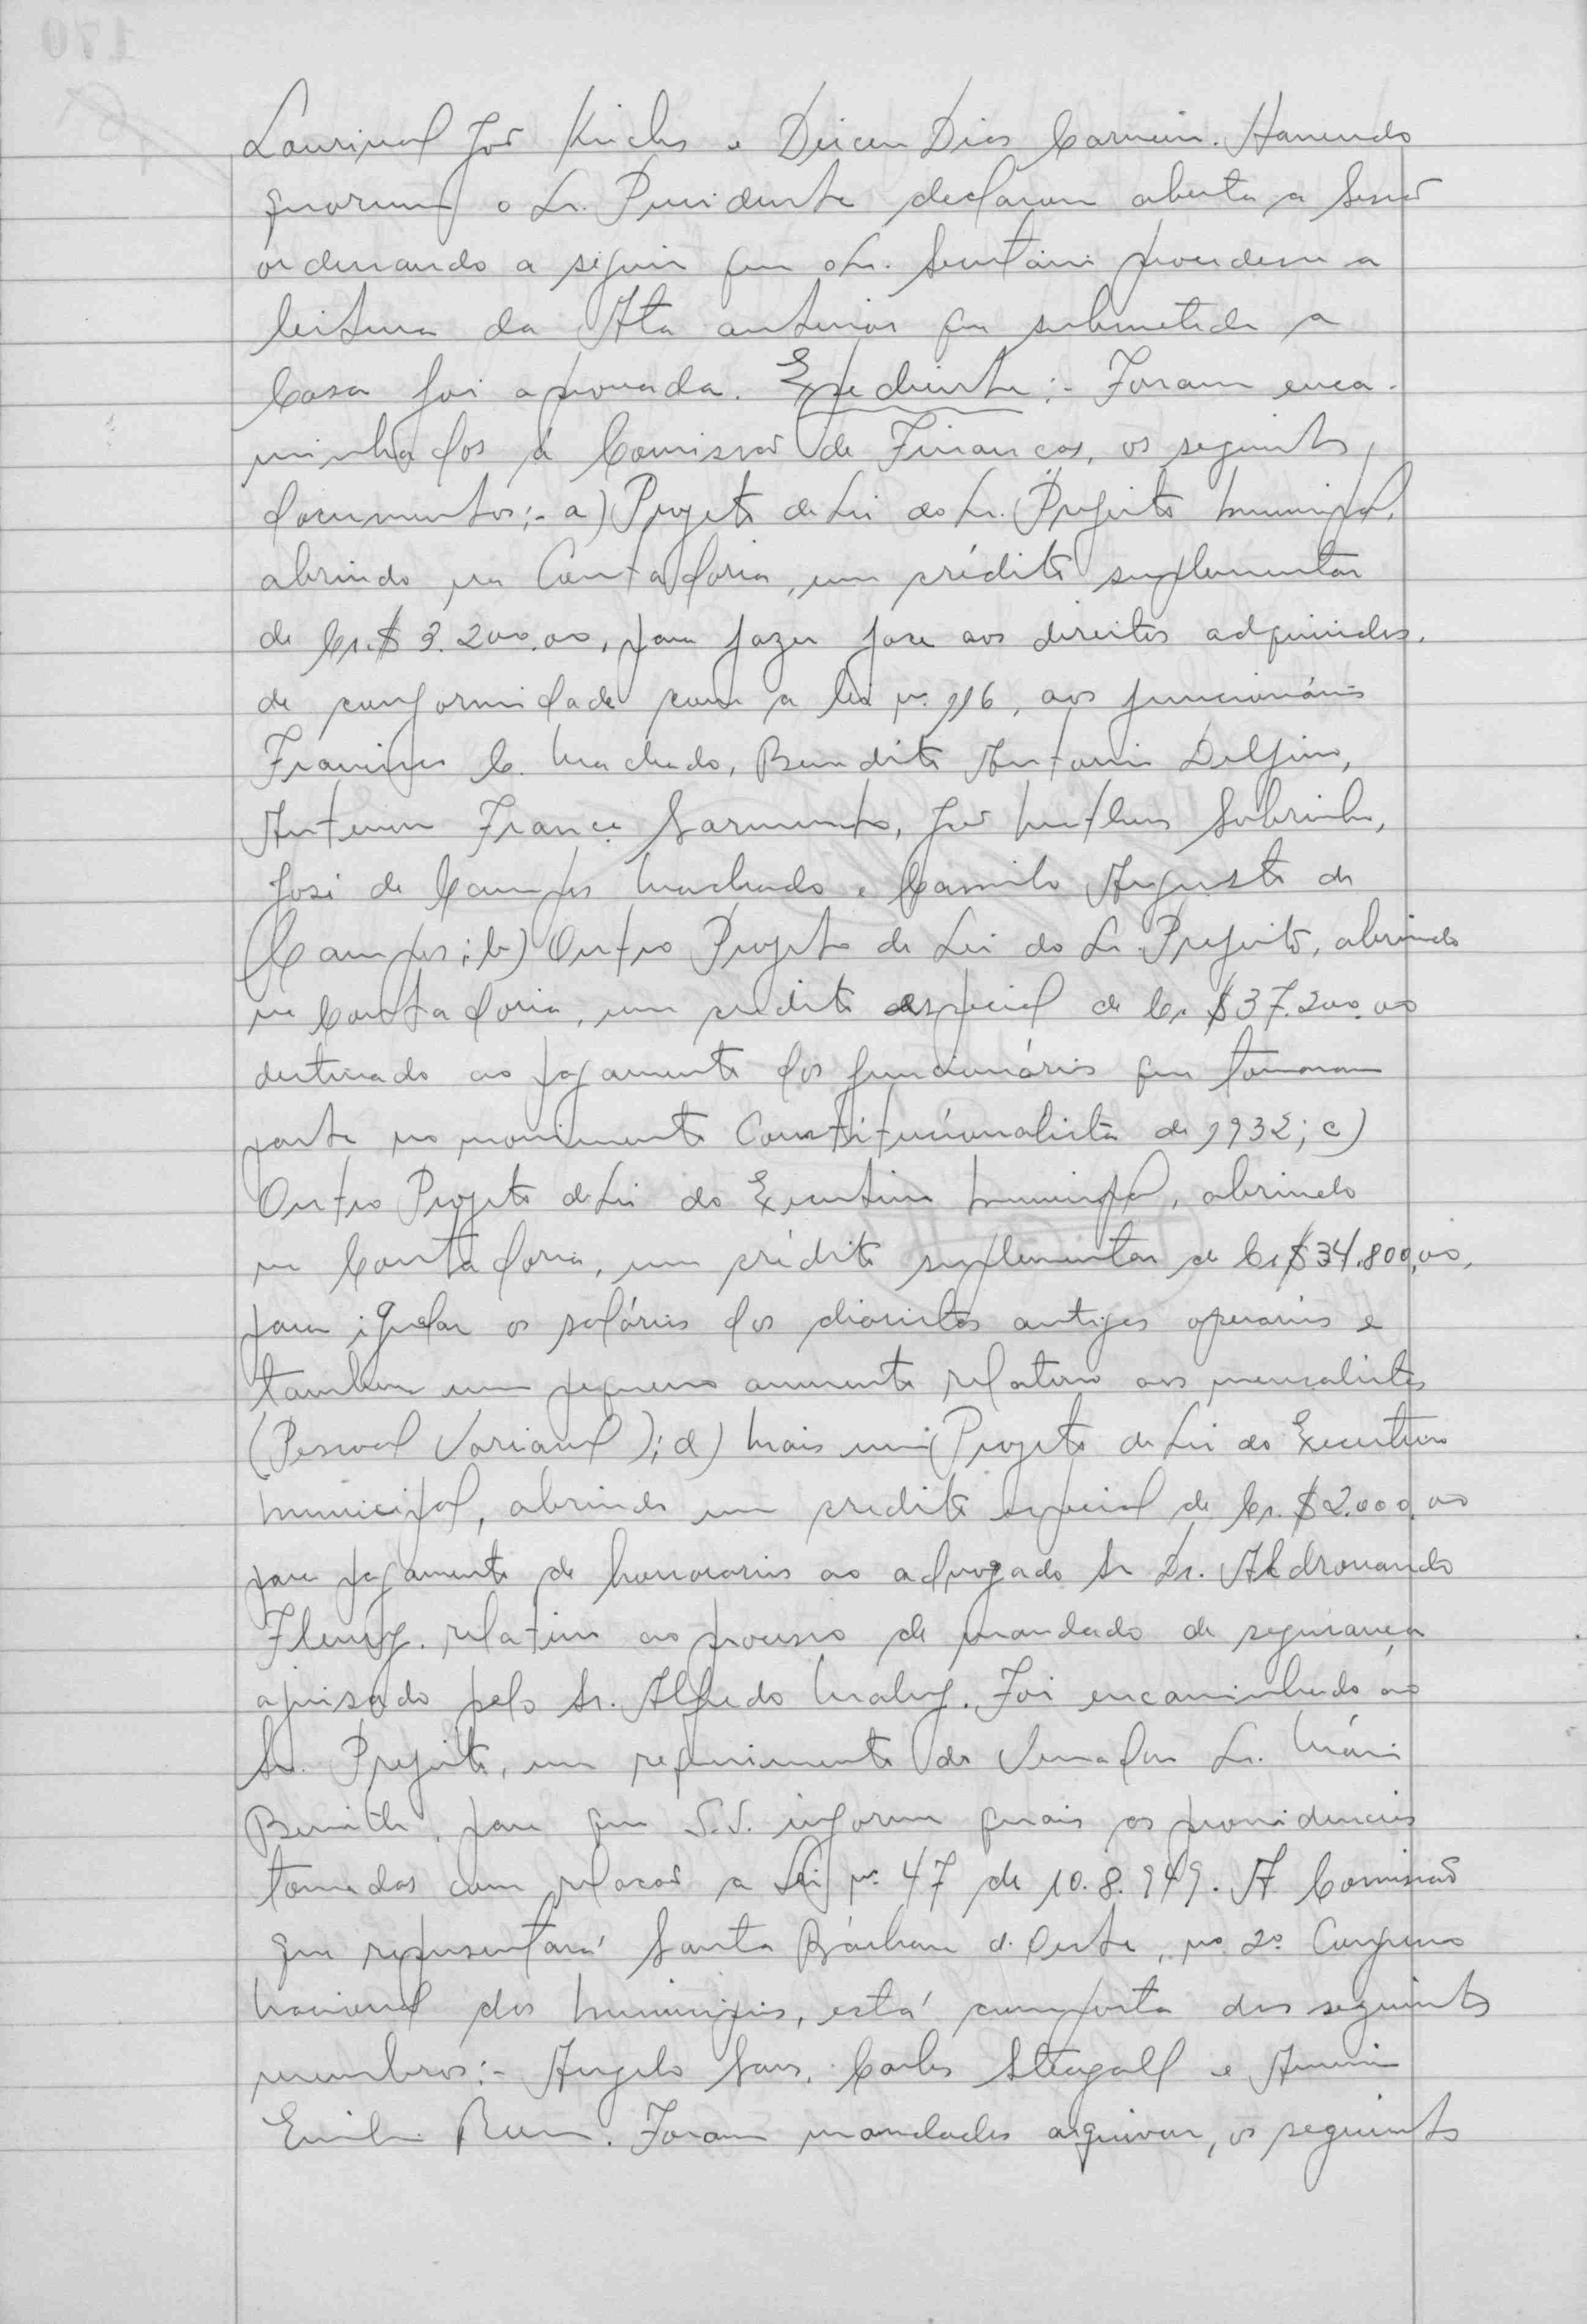 Lourival José Kirche e Dirceu Dias Carneiro. Havendo
quorum o Sr. Presidente declarou aberta a Sessão
ordenando a seguir que o Sr. Secretário procedesse a
leitura da Ata anterior que submetida a
Casa foi aprovada. Expediente:- Foram enca-
minhados à Comissão de Finanças, os seguintes
documentos:- a) Projeto de Lei do Sr. Prefeito Municipal,
abrindo na Contadoria, um crédito suplementar
de Cr.$ 3.200,00, para fazer face aos direitos adquiridos,
de conformidade com a lei nº 116, aos funcionários
Francisco C. Machado, Benedito Antonio Delfino,
Antenor França Sarmento, José Sobrinho,
José de Campos Machado e Camilo Augusto de
Campos; b) Outro Projeto de Lei do Sr. Prefeito, abrindo
na Contadoria, um credito especial de Cr $ 37.200,00
destinado ao pagamento dos funcionários que tomaram
parte no movimento Constitucionalista de 1932; c)
Outro Projeto de Lei do Executivo Municipal, abrindo
na Contadoria, um crédito suplementar de Cr $ 34.800,00,
para igualar os salários dos diaristas antigos operarios e
tambem um pequeno aumento relativo aos mensalistas
(Pessoal Variavel); d) Mais um Projeto de Lei do Executivo
Municipal, abrindo um credito especial de Cr. $ 2.000,00
para pagamento de honorarios ao advogado Sr Dr. Aldrovando
Fleury, relativo ao processo de mandado de segurança
ajuisado pelo Sr. Alfredo Maluf. Foi encaminhado ao
Sr. Prefeito, um requerimento do Vereador Sr. Mário
, para que S.S. informe quais as providencias
tomadas com relação a Lei nº 47 de 10.8.949. A Comissão
que representará Santa Bárbara d'Oeste, no 2º Congresso
Nacional dos Municipios, está composta dos seguintes
membros:- Angelo Sans, Carlos Steagall e
Emilio . Foram mandados arquivar, os seguintes